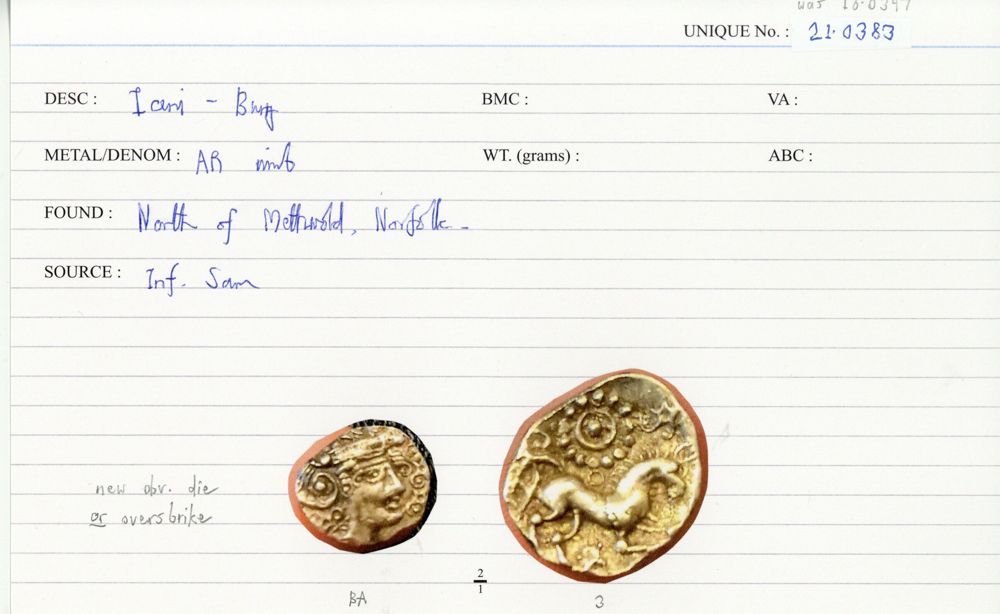 was 10.0397
UNIQUE No. : 21.0383
DESC : Iceni - Bury BMC : VA :
METAL/DENOM : AR unit WT. (grams) : ABC :
FOUND : North of Methwold, Norfolk.
SOURCE : Inf. Sam
new obv. die
or overstrike
2
1
BA 3